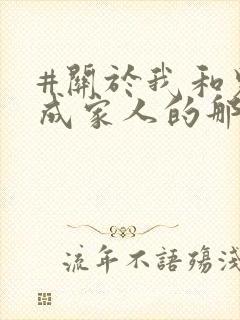 #關於我和
成家人的那
流年不語殤淺